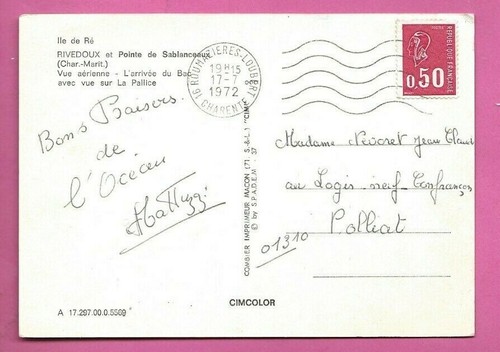 Ile de Ré
RIVEDOUX et Pointe de Sablanceaux
(Char.-Marit.)
Vue aérienne - L'arrivée du Bac
avec vue sur La Pallice
16 ROUMAZIERES-LOUBERT
19H15
17-7
1972
CHARENTE
0,50
REPUBLIQUE FRANÇAISE
Bons Baisers
de
l'Océan
COMBIER IMPRIMEUR MACON (71, S.-&-L.) "CIM"
© by S.P.A.D.E.M. 37
Madame Jean Claude
au Logis neuf Confrançon
Polliat
01310
CIMCOLOR
A 17.297.00.0.5509